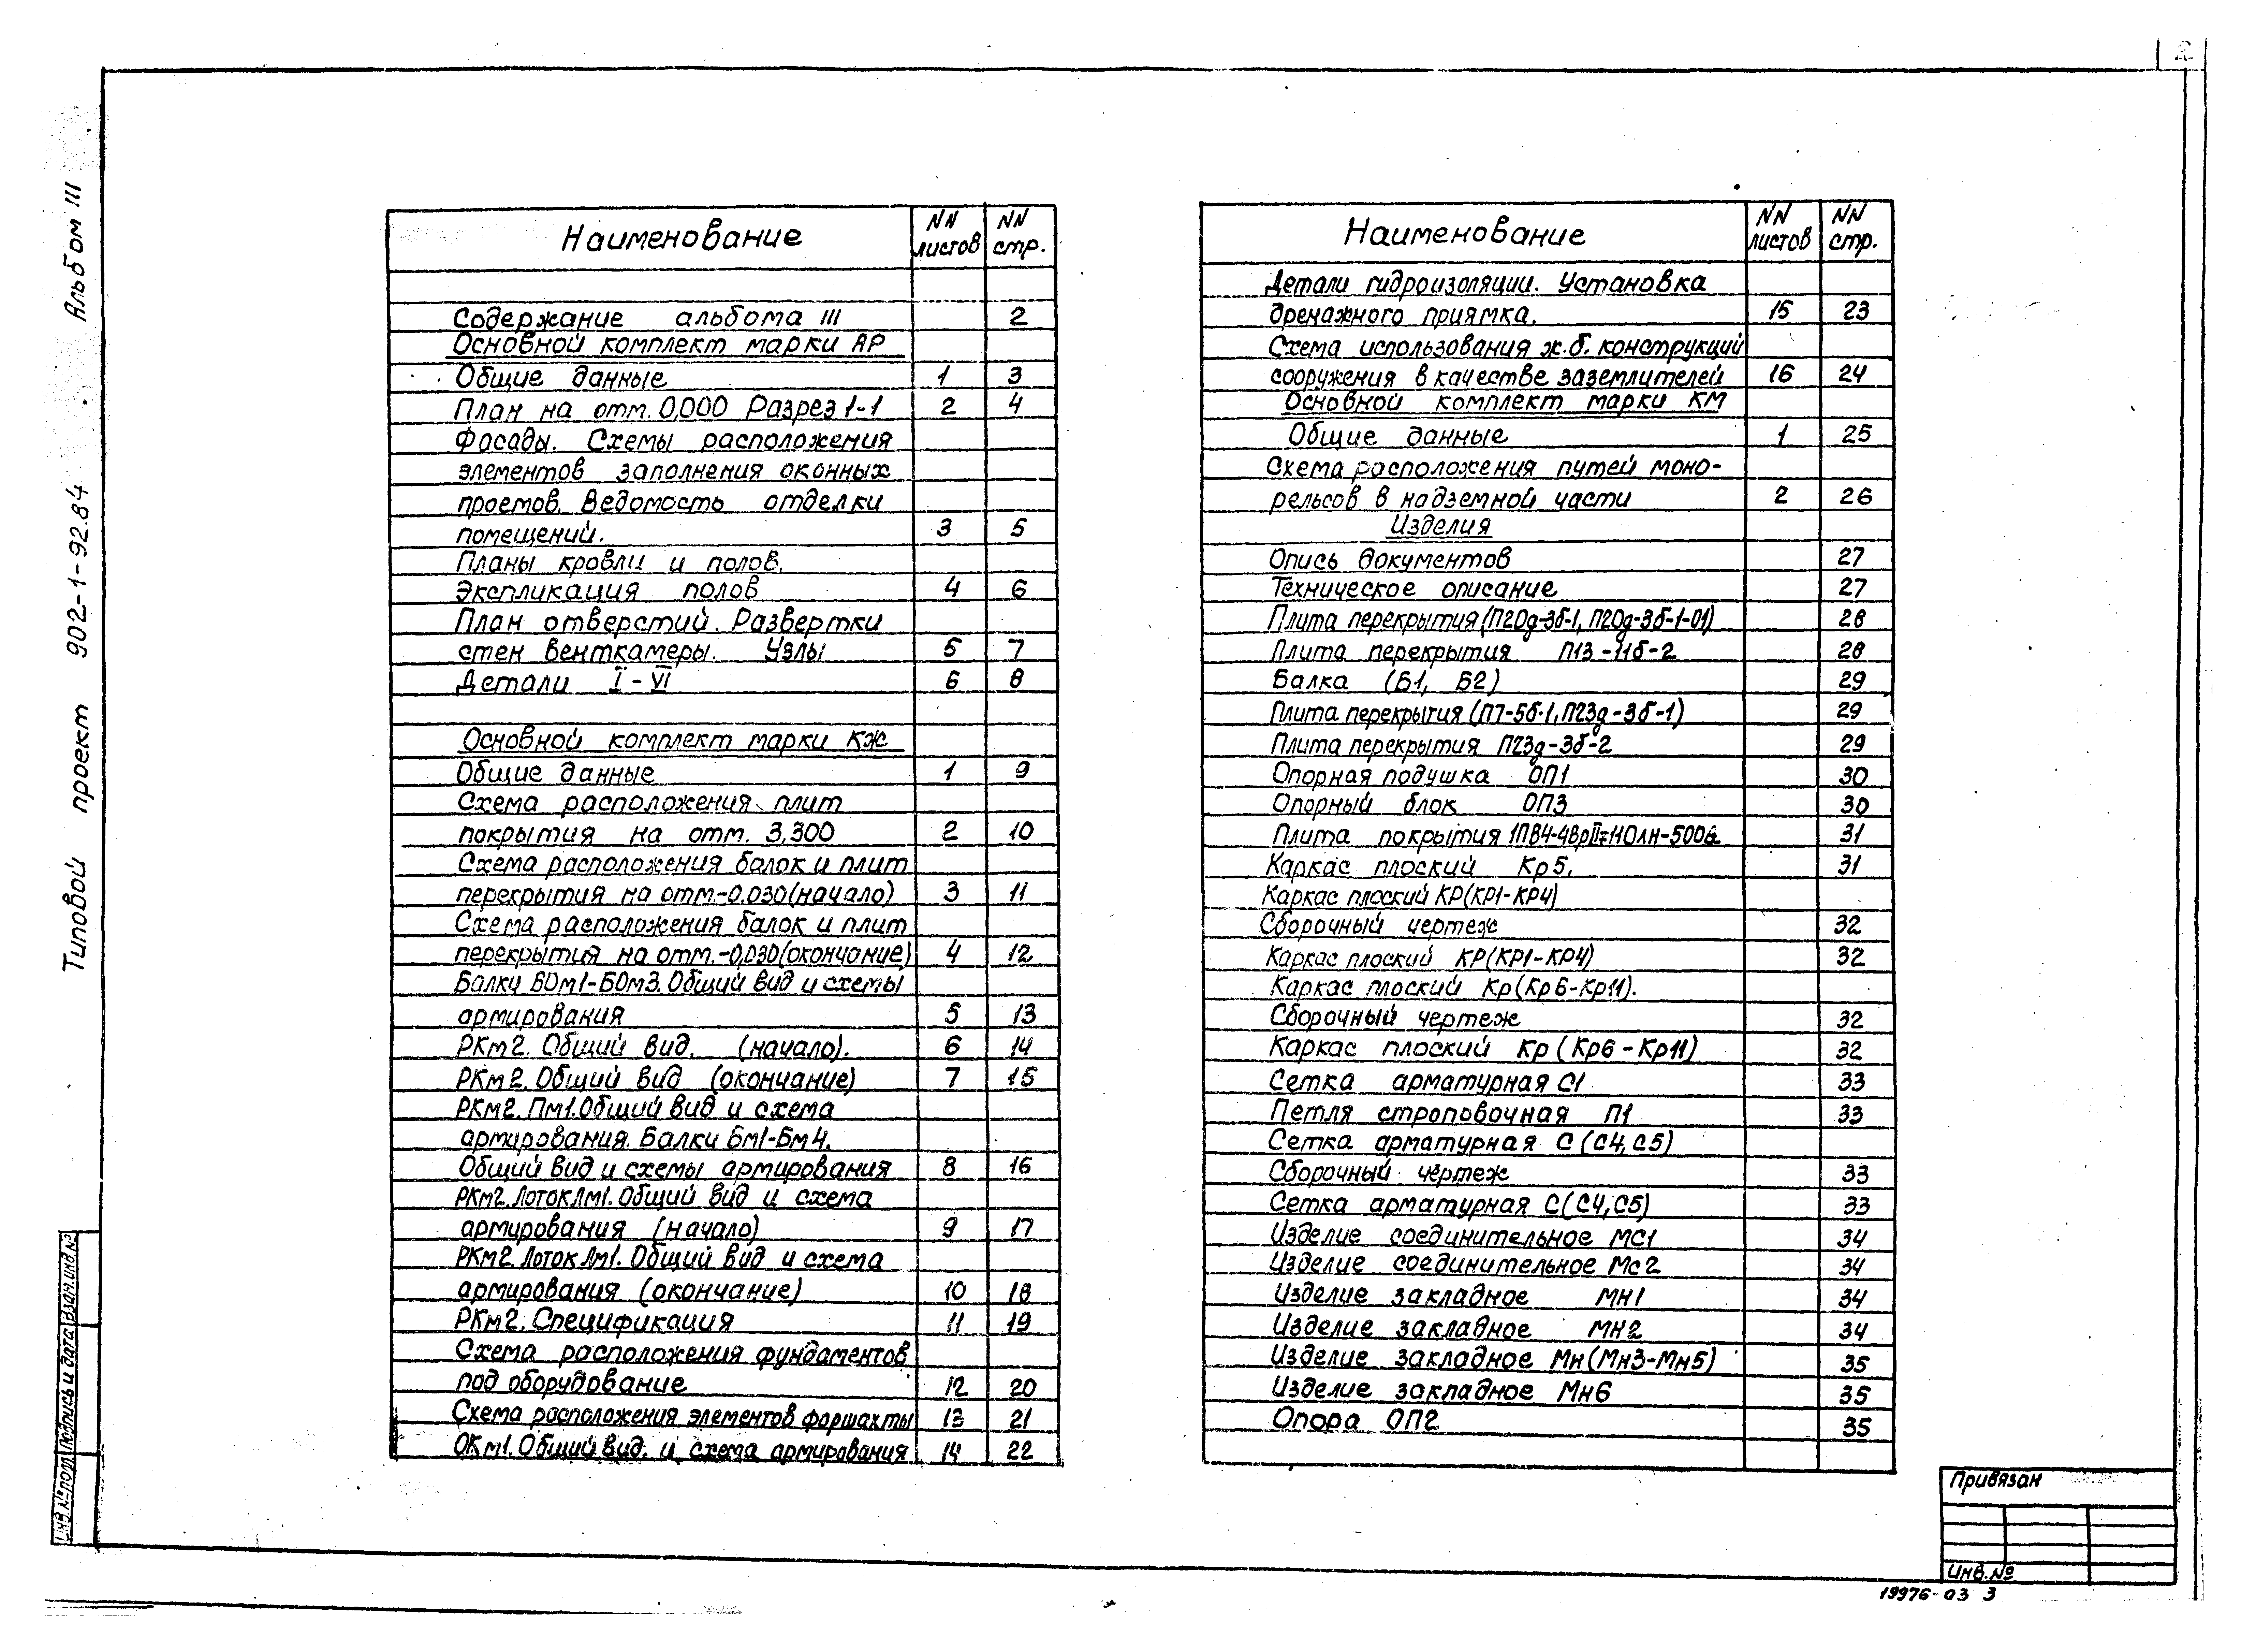 2
Типовой проект 902-1-92.84 Альбом III
Наименование NN листов NN стр.
Содержание альбома III 2
Основной комплект марки АР
Общие данные 1 3
План на отм. 0,000 Разрез 1-1 2 4
Фасады. Схемы расположения
элементов заполнения оконных
проемов. Ведомость отделки
помещений. 3 5
Планы кровли и полов.
Экспликация полов 4 6
План отверстий. Развертки
стен венткамеры. Узлы 5 7
Детали I - VI 6 8
Основной комплект марки КЖ
Общие данные 1 9
Схема расположения плит
покрытия на отм. 3,300 2 10
Схема расположения балок и плит
перекрытия на отм.-0.030 (начало) 3 11
Схема расположения балок и плит
перекрытия на отм.-0,030 (окончание) 4 12
Балки БОм1-БОм3. Общий вид и схемы
армирования 5 13
РКм2. Общий вид. (начало). 6 14
РКм2. Общий вид (окончание) 7 15
РКм2. Пм1. Общий вид и схема
армирования. Балки Бм1-Бм4.
Общий вид и схемы армирования 8 16
РКм2. Лоток Лм1. Общий вид и схема
армирования (начало) 9 17
РКм2. Лоток Лм1. Общий вид и схема
армирования (окончание) 10 18
РКм2. Спецификация 11 19
Схема расположения фундаментов
под оборудование 12 20
Схема расположения элементов форшахты 13 21
ОКм1. Общий вид. и схема армирования 14 22
Наименование NN листов NN стр.
Детали гидроизоляции. Установка
дренажного приямка. 15 23
Схема использования ж.б. конструкций
сооружения в качестве заземлителей 16 24
Основной комплект марки КМ
Общие данные 1 25
Схема расположения путей моно-
рельсов в надземной части 2 26
Изделия
Опись документов 27
Техническое описание 27
Плита перекрытия (П20д-3б-1, П20д-3б-1-01) 28
Плита перекрытия П13-11б-2 28
Балка (Б1, Б2) 29
Плита перекрытия (П7-5б-1, П23д-3б-1) 29
Плита перекрытия П23д-3б-2 29
Опорная подушка ОП1 30
Опорный блок ОП3 30
Плита покрытия 31
Каркас плоский Кр5. 31
Каркас плоский КР (КР1-КР4)
Сборочный чертеж 32
Каркас плоский КР (КР1-КР4) 32
Каркас плоский Кр (Кр6-Кр11).
Сборочный чертеж 32
Каркас плоский Кр (Кр6-Кр11) 32
Сетка арматурная С1 33
Петля строповочная П1 33
Сетка арматурная С (С4, С5)
Сборочный чертеж 33
Сетка арматурная С (С4, С5) 33
Изделие соединительное МС1 34
Изделие соединительное Мс2 34
Изделие закладное МН1 34
Изделие закладное МН2 34
Изделие закладное Мн (Мн3-Мн5) 35
Изделие закладное Мн6 35
Опора ОП2 35
Инв.№ подл. Подпись и дата Взам.инв.№
Привязан
Инв.№
19976-03 3